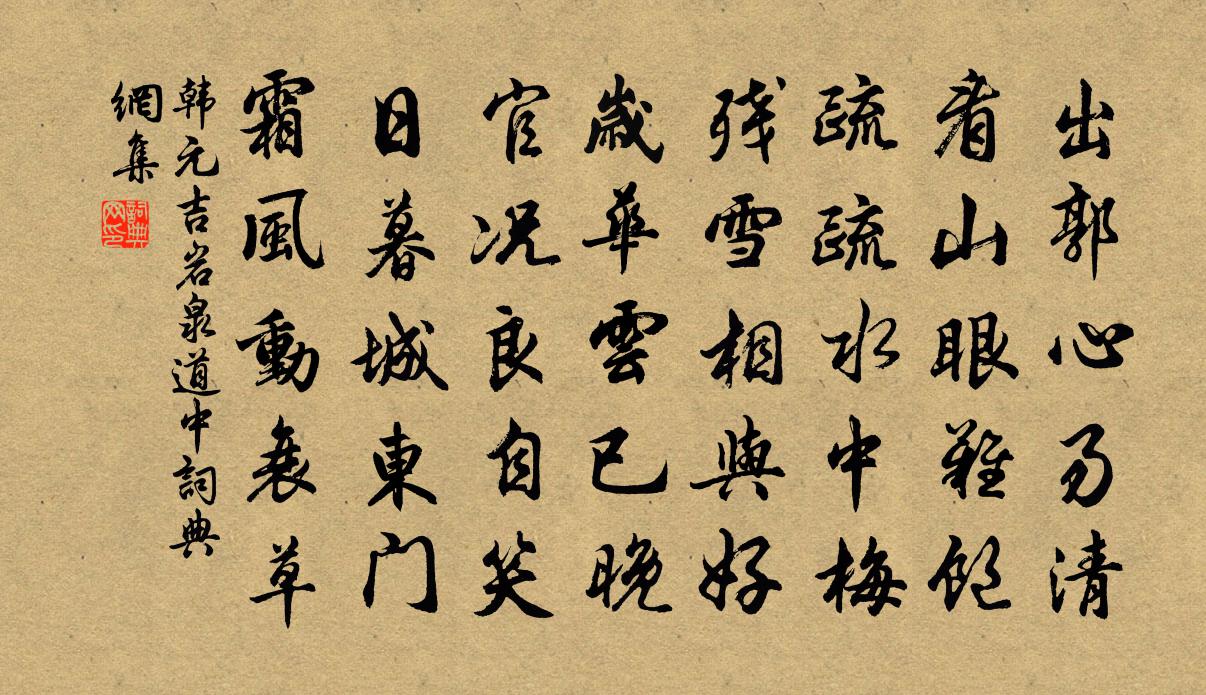 出郭心易清
看山眼難飽
疏疏水中梅
残雪相與好
歲華雲已晚
官况良自笑
日暮城東門
霜風動衰草
韩元吉岩泉道中詞典
網集
詞典網印